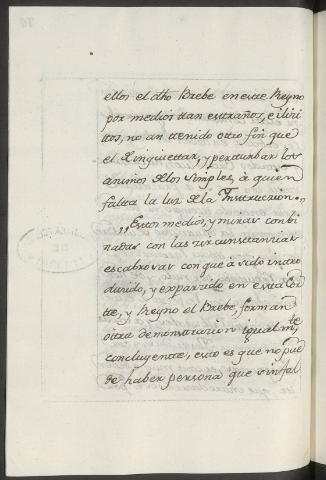 ellos el dho Brebe en este Reyno
por medios ttan estraños, e iliri
ttos, no an ttenido otro fin que
el Ynquiettar, y perturbar los
animos de los simples, à quien
faltta la luz de la Ynstruccion.
,, Estos medios, y miras conbi
nadas con las zircunstanzias
escabrosas con que à sido intro
duzido, y esparzido en esta Cor
tte, y Reyno el Brebe, forman
ottra demonstrazion igualmte
concluyente, estto es que no pue
de haber persona que sin fal